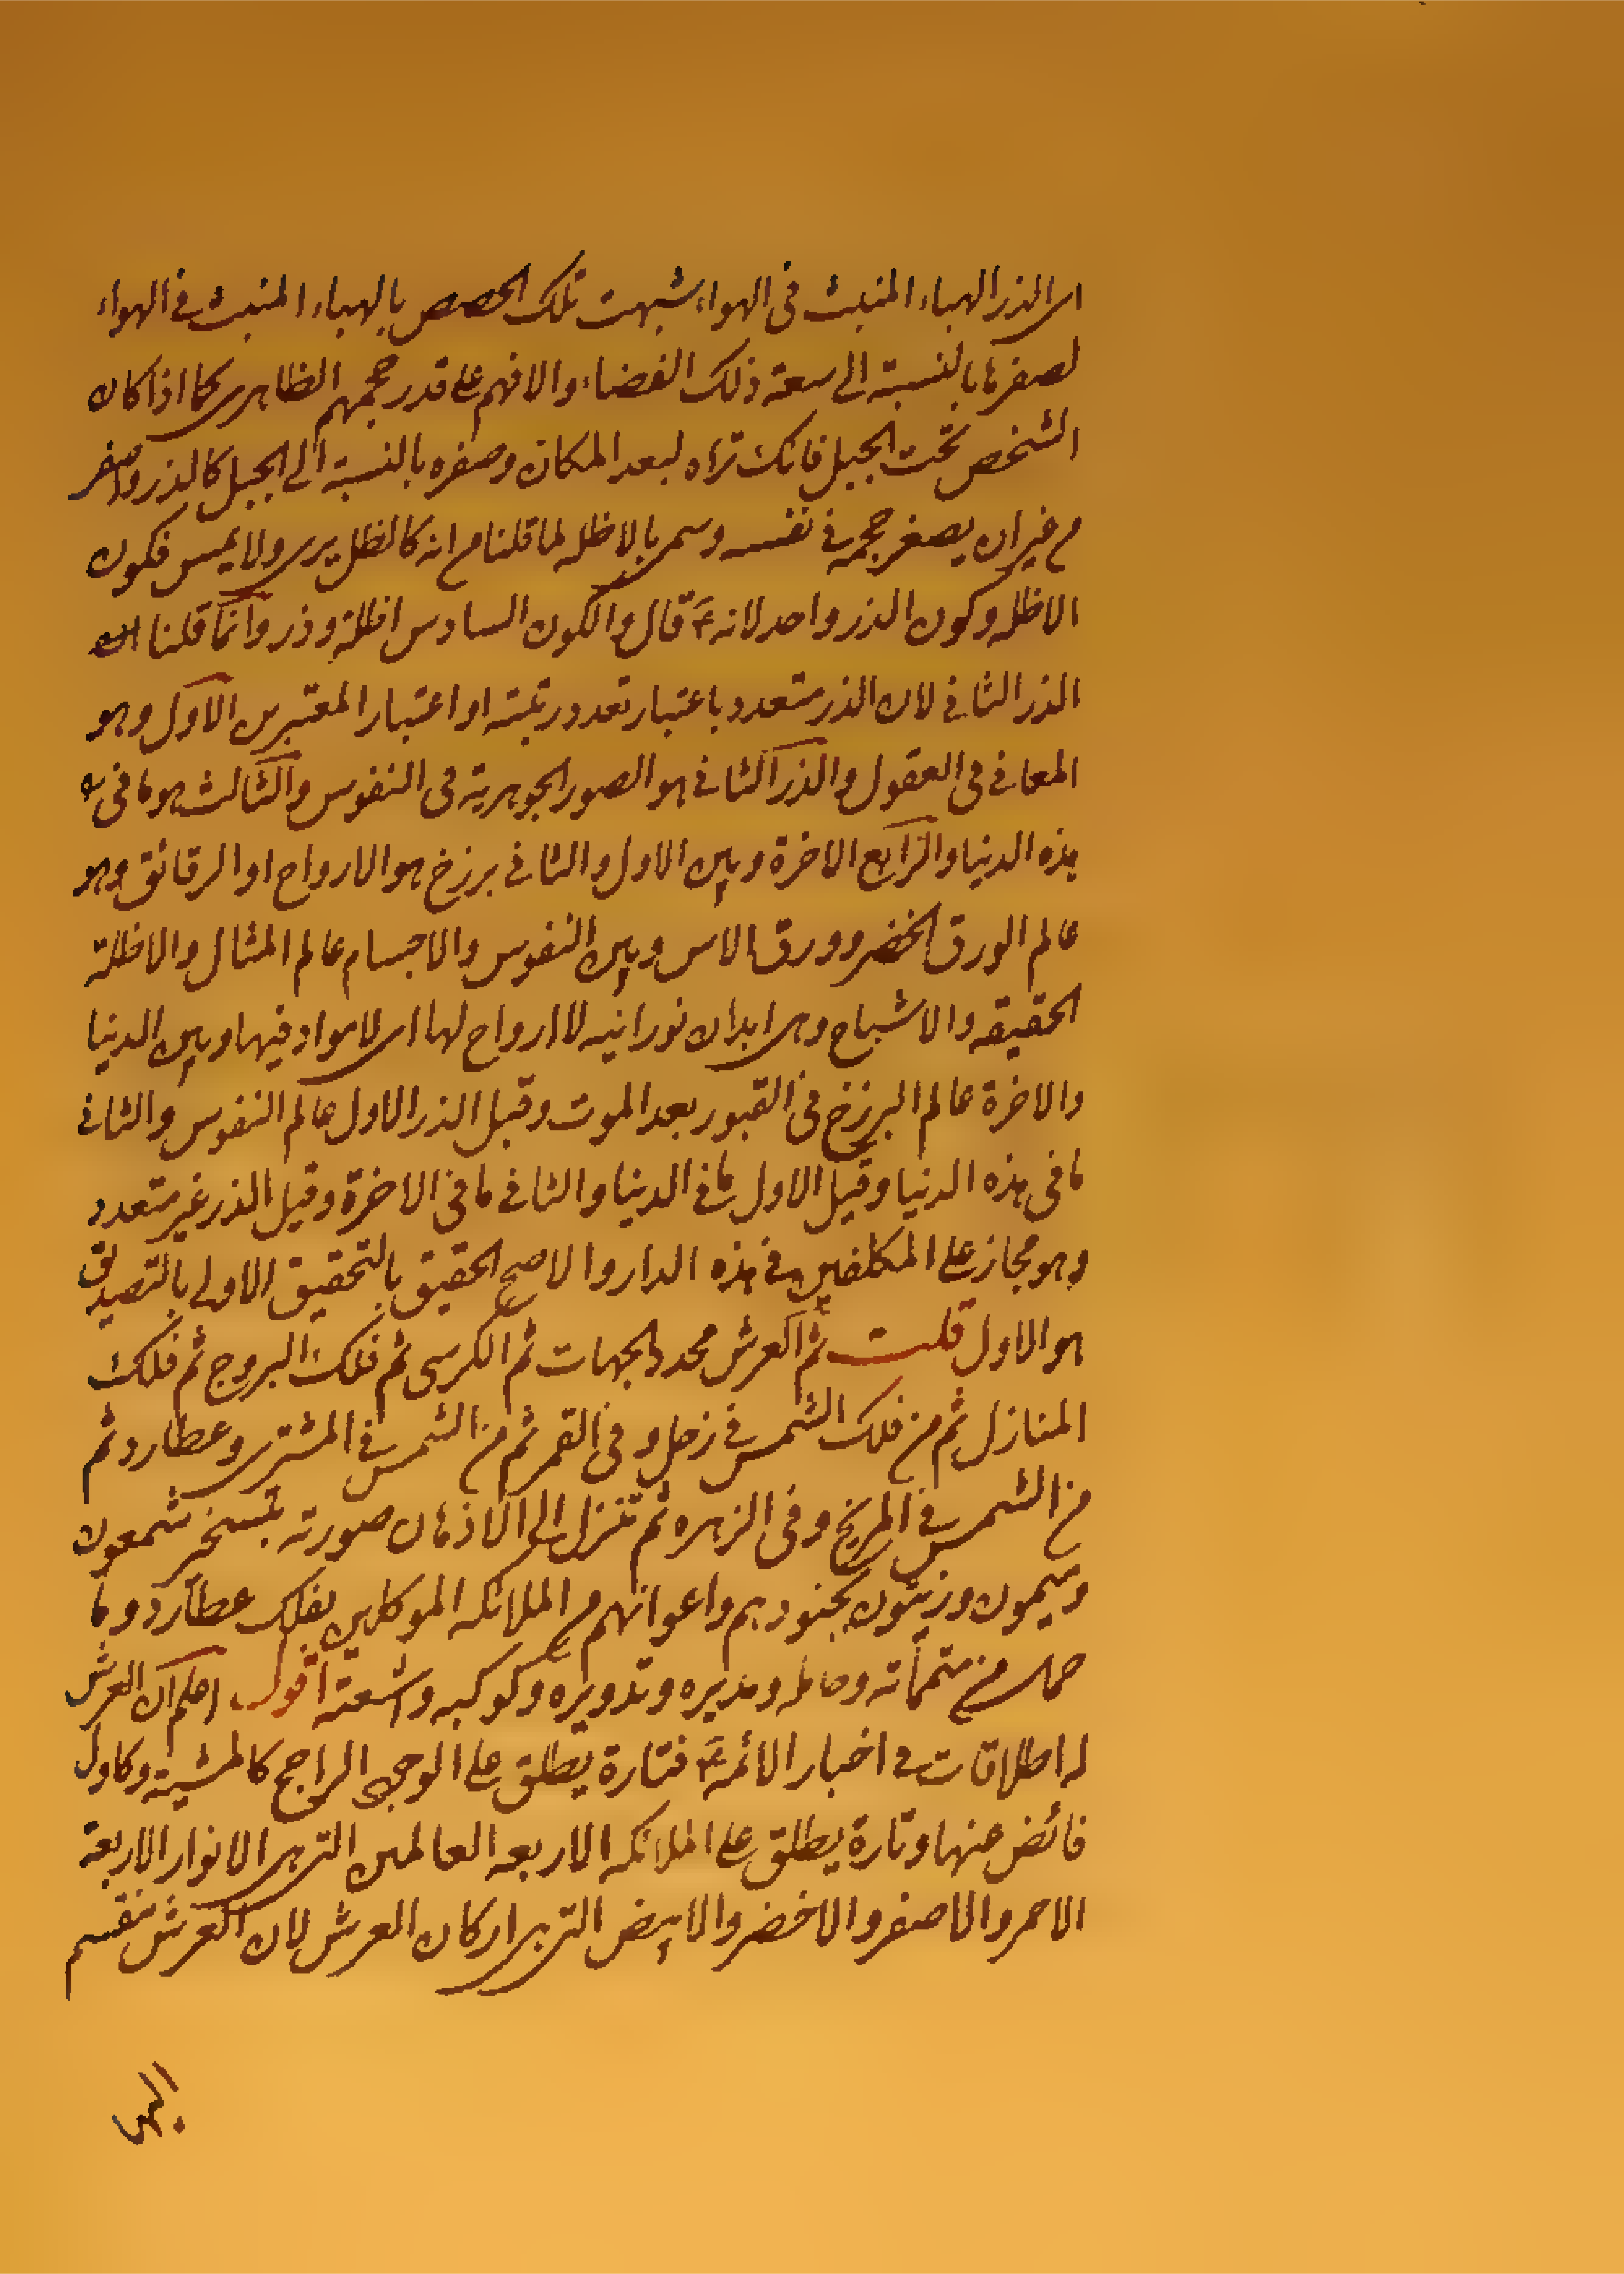 اى الذر الهباء المنبث فى الهواء شبهت تلك الحصص بالهباء المنبث فى الهواء
لصغرها بالنسبة الى سعة ذلك الفضاء والا فهم على قدر حجمهم الظاهرى كما اذا كان
الشخص تحت الجبل فانك تراه لبعد المكان وصغره بالنسبة الى الجبل كالذر واصغر
من غير ان يصغر حجمه فى نفسه وسمى بالاظله لما قلنا من انه كالظل يرى ولا يمس فكون
الاظله وكون الذر واحد لانه ع قال والكون السادس اظلة وذر وانما قلنا ان
الذر الثانى لان الذر متعدد باعتبار تعدد رتبته او اعتبار المعتبرين الاول وهو
المعانى فى العقول والذر الثانى هو الصور الجوهرية فى النفوس والثالث هو ما فى
هذه الدنيا والرابع الاخرة وبين الاول والثانى برزخ هو الارواح او الرقائق وهو
عالم الورق الخضر وورق الاس وبين النفوس والاجسام عالم المثال والاظلة
الحقيقه والاشباح وهى ابدان نورانيه لا ارواح لها اى لا مواد فيها وبين الدنيا
والاخرة عالم البرزخ فى القبور بعد الموت وقيل الذر الاول عالم النفوس والثانى
ما فى هذه الدنيا وقيل الاول ما فى الدينا والثانى ما فى الاخرة وقيل الذر غير متعدد
وهو مجاز على المكلفين فى هذه الدار والاصح الحقيق بالتحقيق الاولى بالتصديق
هو الاول قلت ثم العرش محدد الجهات ثم الكرسى ثم فلك البروج ثم فلك
المنازل ثم من فلك الشمس فى زحل وفى القمر ثم من الشمس فى المشترى وعطارد ثم
من الشمس فى المريخ وفى الزهره ثم تنزل الى الاذهان صورته بتسخير شمعون
وسيمون وزيتون بجنودهم واعوانهم من الملائكه الموكلين بفلك عطارد وما
حمل من متمماته وحامله ومديره وتدويره وكوكبه واشعته اقول اعلم ان العرش
له اطلاقات فى اخبار الائمة ع فتارة يطلق على الوجود الراجح كالمشية وكاول
فائض عنها وتارة يطلق على الملائكه الاربعه العالمين التى هى الانوار الاربعة
الاحمر والاصفر والاخضر والابيض التى هى اركان العرش لان العرش ينقسم
اليها